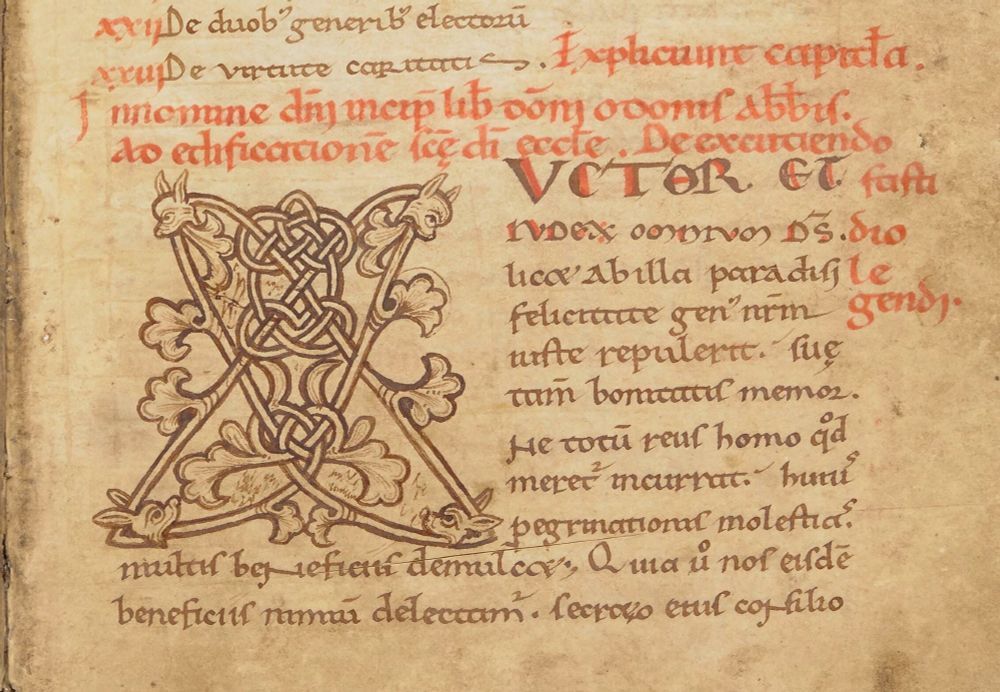 xxii De duob᾽ generib᾽ electorū
xxiii De virtute caritatis. Expliciunt capitl̄a.
In nomine dn̄i incip̄ lib̄ dōni odonis abb̄is.
Ad edificationē scē di eccl̄e. De excutiendo
fasti
dio
le
gendi.
AUCTOR ET
IUDEX omnium D̄S.
licet ab illa paradisi
felicitate gen᾽ nr̄m
iuste repulerit. suę
tam̄ bonitatis memor.
Ne totū reus homo qd̄
meret᾽ incurrat. hui᾽
peg̃rinationis molestias
multis beneficiis demulcet. Quia ů nos eisdē
beneficiis nimiū delectam᾽. secreto eius consilio